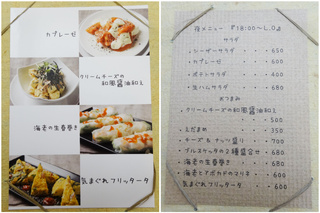 カプレーゼ
クリームチーズの
和風醤油和え
海老の生春巻き
気まぐれフリッタータ
夜メニュー 『18:00〜L.O』
サラダ
・シーザーサラダ ・・・650
・カプレーゼ ・・・600
・ポテトサラダ ・・・450
・生ハムサラダ ・・・680
おつまみ
・クリームチーズの和風醤油和え
・・・500
・えだまめ ・・・350
・チーズ&ナッツ盛り ・・・700
・ブルスケッタの3種盛合せ ・・680
・海老の生春巻き ・・・680
・海老とアボカドのマリネ ・・・680
気まぐれフリッタータ ・・・600